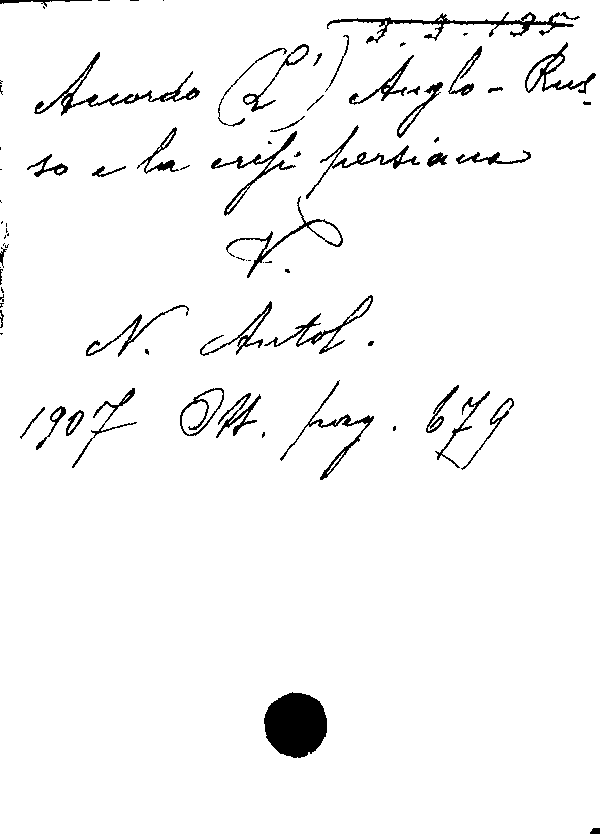 3. 3. 135
Accordo (L') Anglo-Rus-
so e la crisi persiana
V.
N. Antol.
1907 Ott. pag. 679